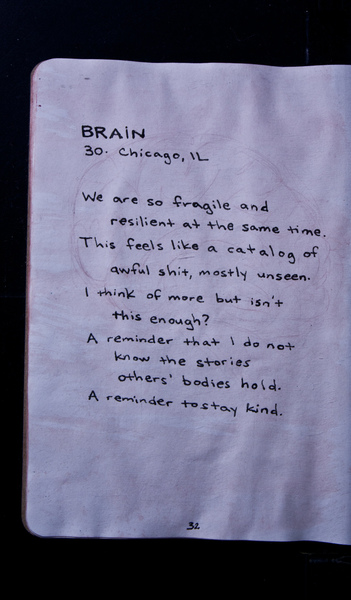 BRAIN
30. Chicago, IL
We are so fragile and
resilient at the same time.
This feels like a catalog of
awful shit, mostly unseen.
I think of more but isn't
this enough?
A reminder that I do not
know the stories
others' bodies hold.
A reminder to stay kind.
32